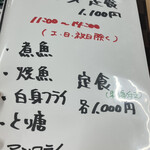 定食
1.100円
11:00〜14:00
(土.日.祝日除く)
・煮魚
・焼魚 定食
・白身フライ 各1.000円
・とり唐